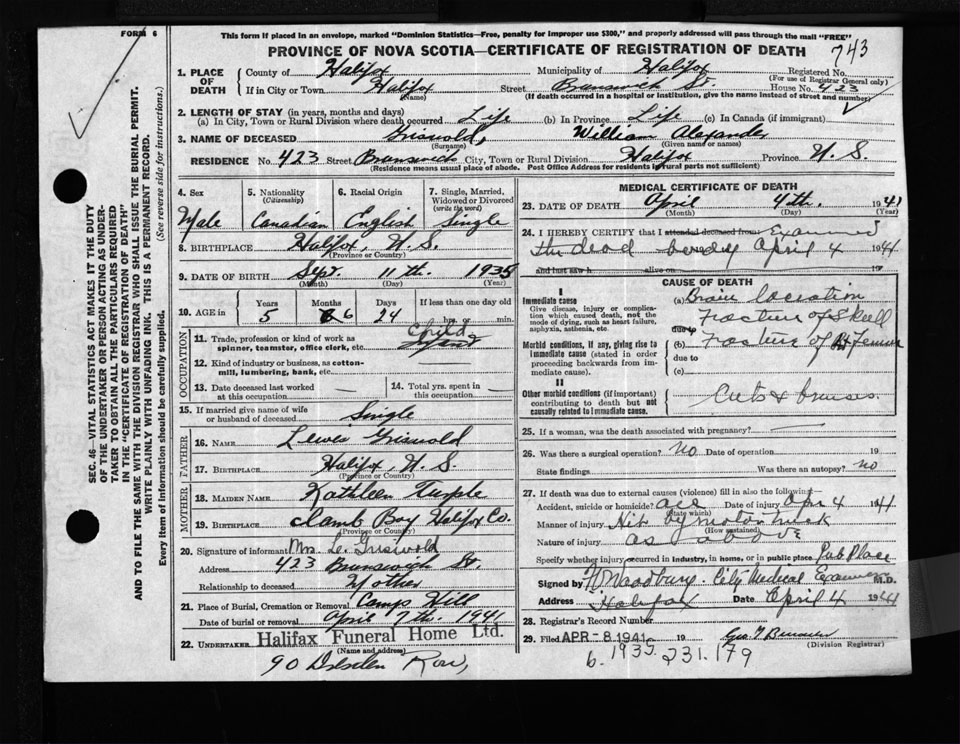 FORM 6
This form if placed in an envelope, marked "Dominion Statistics—Free, Penalty for improper use $300," and properly addressed will pass through the mail "FREE"
PROVINCE OF NOVA SCOTIA—CERTIFICATE OF REGISTRATION OF DEATH
743
1. PLACE OF DEATH
County of Halifax Municipality of Halifax Registered No.
(For use of Registrar General only)
If in City or Town Halifax Street Brunswick St House No. 423
(Name) (If death occurred in a hospital or institution, give the name instead of street and number)
2. LENGTH OF STAY (in years, months and days)
(a) In City, Town or Rural Division where death occurred Life (b) In Province Life (c) In Canada (if immigrant)
3. NAME OF DECEASED Griswold, William Alexander
(Surname) (Given name or names)
RESIDENCE No. 423 Street Brunswick City, Town or Rural Division Halifax Province N. S.
(Residence means usual place of abode. Post Office Address for residents in rural parts not sufficient)
4. Sex Male
5. Nationality (Citizenship) Canadian
6. Racial Origin English
7. Single, Married, Widowed or Divorced (write the word) Single
8. BIRTHPLACE Halifax, N. S.
(Province or Country)
9. DATE OF BIRTH Sept. 11th. 1935
(Month) (Day) (Year)
10. AGE in Years Months Days If less than one day old
5 6 24 hrs. or min.
OCCUPATION
11. Trade, profession or kind of work as spinner, teamster, office clerk, etc. Child
12. Kind of industry or business, as cotton-mill, lumbering, bank, etc.
13. Date deceased last worked at this occupation —
14. Total yrs. spent in this occupation —
15. If married give name of wife or husband of deceased Single
FATHER
16. NAME Lewis Griswold
17. BIRTHPLACE Halifax, N. S.
(Province or Country)
MOTHER
18. MAIDEN NAME Kathleen Turple
19. BIRTHPLACE Clamb Bay Halifax Co.
(Province or Country)
20. Signature of informant Mrs. L. Griswold
Address 423 Brunswick St.
Relationship to deceased Mother
21. Place of Burial, Cremation or Removal Camp Hill
Date of burial or removal April 7th. 1941
22. UNDERTAKER Halifax Funeral Home Ltd.
(Name and address)
90 Dresden Row,
MEDICAL CERTIFICATE OF DEATH
23. DATE OF DEATH April 4th. 1941
(Month) (Day) (Year)
24. I HEREBY CERTIFY that I attended deceased from Examined
the dead body April 4 1941
and last saw h alive on 19
CAUSE OF DEATH
I
Immediate cause
Give disease, injury or complication which caused death, not the mode of dying, such as heart failure, asphyxia, asthenia, etc.
(a) Brain laceration
Fracture of Skull
due to
Morbid conditions, if any, giving rise to immediate cause (stated in order proceeding backwards from immediate cause).
(b) Fracture of Rt Femur
due to
(c)
II
Other morbid conditions (if important) contributing to death but not causally related to immediate cause.
Cuts & bruises
25. If a woman, was the death associated with pregnancy? —
26. Was there a surgical operation? No Date of operation 19
State findings Was there an autopsy? no
27. If death was due to external causes (violence) fill in also the following—
Accident, suicide or homicide? acc Date of injury Apr 4 1941
(State which)
Manner of injury Hit by motor truck
(How sustained)
Nature of injury as above
Specify whether injury occurred in industry, in home, or in public place Pub Place
Signed by N. Woodbury. City Medical Examiner M.D.
Address Halifax Date April 4 1941
28. Registrar's Record Number
29. Filed APR - 8 1941 19
(Division Registrar)
b. 1935. 231.179
SEC. 46—VITAL STATISTICS ACT MAKES IT THE DUTY
OF THE UNDERTAKER OR PERSON ACTING AS UNDERTAKER TO OBTAIN ALL THE PARTICULARS REQUIRED
IN THE "CERTIFICATE OF REGISTRATION OF DEATH"
AND TO FILE THE SAME WITH THE DIVISION REGISTRAR WHO SHALL ISSUE THE BURIAL PERMIT.
WRITE PLAINLY WITH UNFADING INK. THIS IS A PERMANENT RECORD.
Every item of information should be carefully supplied. (See reverse side for instructions.)